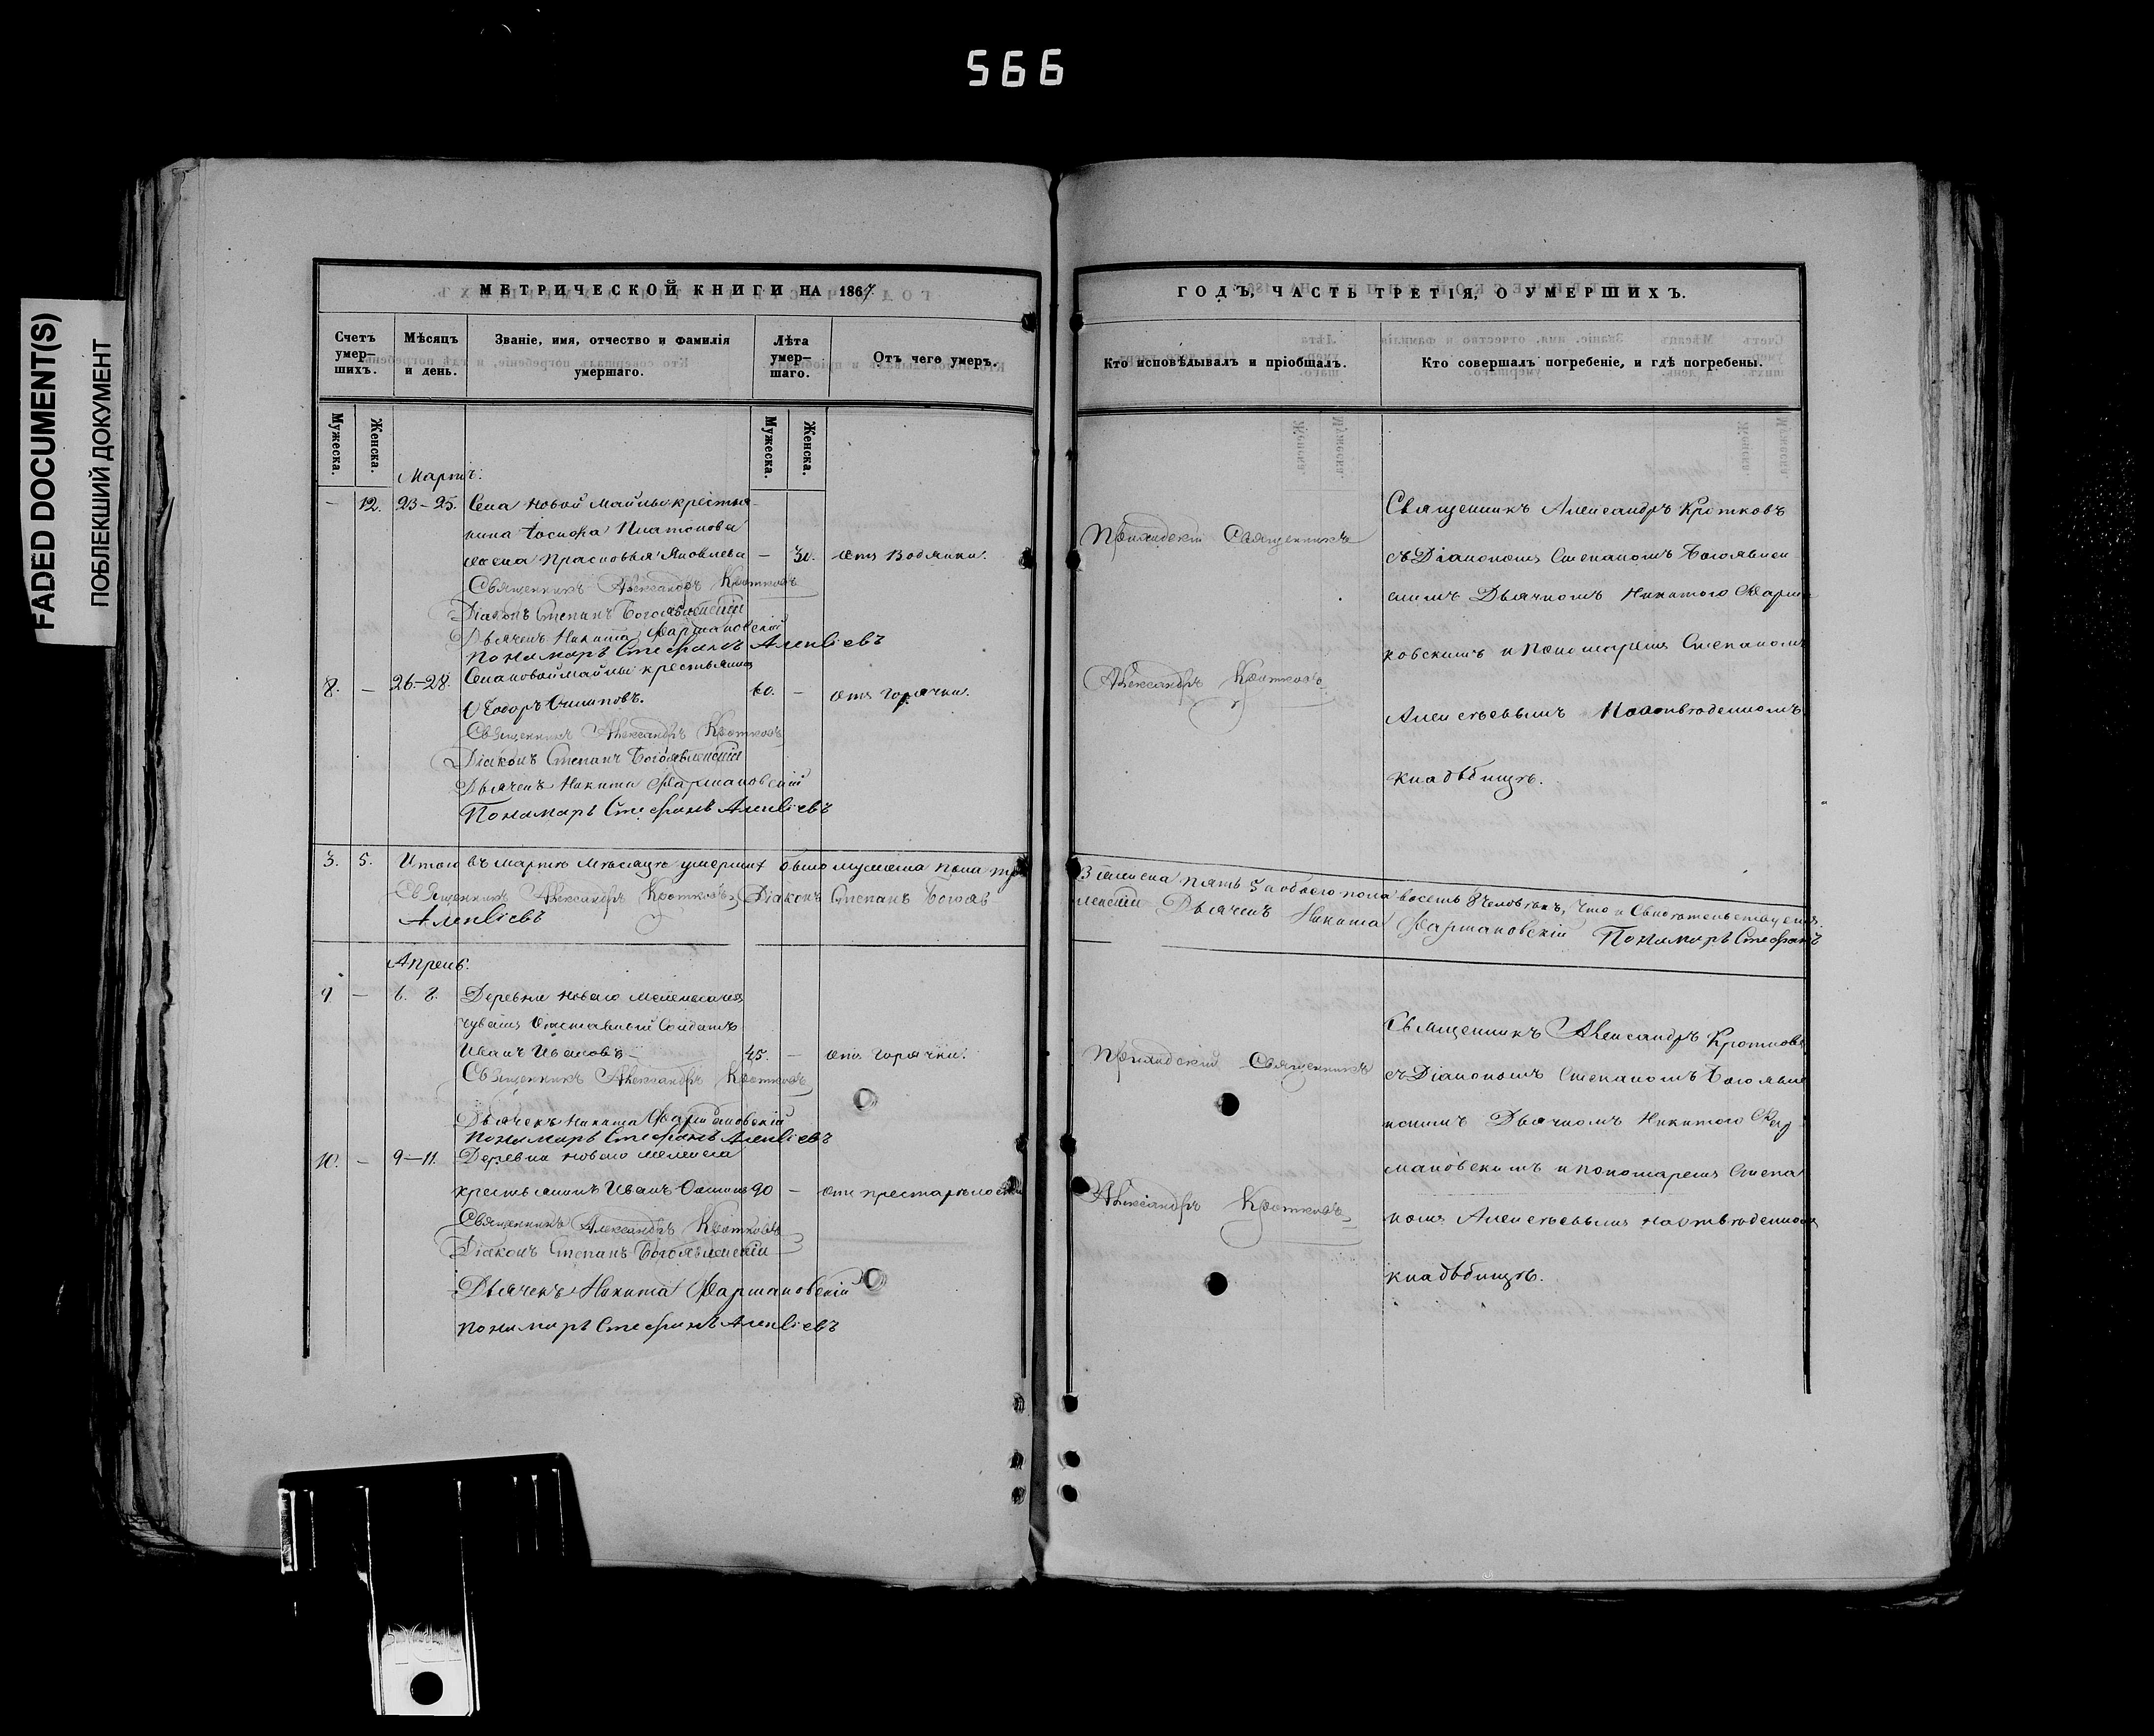 566
FADED DOCUMENT(S)
ПОБЛЕКШИЙ ДОКУМЕНТ
МЕТРИЧЕСКОЙ КНИГИ НА 1867
Счетъ умер-шихъ.
Мѣсяцъ и день.
Званіе, имя, отчество и фамилія умершаго.
Лѣта умер-шаго.
Отъ чего умеръ.
Мужеска.
Женска.
Мужеска.
Женска.
Мартъ.
— 12. 23-25. Села Новой Майны крестья-
нина Іосифа Платонова
жена Прасковья Яковлева — 30. отъ водянки.
Священникъ Александръ Кротковъ
Діаконъ Степанъ Богоявленскій
Дьячекъ Никита Фармаковскій
Пономарь Стефанъ Алексіевъ
8. — 26-28. Села Новой Майны крестьянинъ
Ѳеодоръ 60. — отъ горячки.
Священникъ Александръ Кротковъ
Діаконъ Степанъ Богоявленскій
Дьячекъ Никита Фармаковскій
Пономарь Стефанъ Алексіевъ
3. 5. Итого въ Мартѣ мѣсяцѣ умершихъ было мужеска пола три
Священникъ Александръ Кротковъ, Діаконъ Степанъ Богояв-
Алексіевъ
Апрель.
9 — 6. 8. Деревни Новаго
чувашъ отставный солдатъ
Иванъ Ивановъ — 45. — отъ горячки.
Священникъ Александръ Кротковъ
Дьячекъ Никита Фармаковскій
Пономарь Стефанъ Алексіевъ
10. — 9-11. Деревни Новаго
крестьянинъ Иванъ 90 — отъ престарѣлости
Священникъ Александръ Кротковъ
Діаконъ Степанъ Богоявленскій
Дьячекъ Никита Фармаковскій
Пономарь Стефанъ Алексіевъ
ГОДЪ, ЧАСТЬ ТРЕТІЯ, О УМЕРШИХЪ.
Кто исповѣдывалъ и пріобщалъ.
Кто совершалъ погребеніе, и гдѣ погребены.
Приходскій Священникъ
Александръ Кротковъ
Священникъ Александръ Кротковъ
съ Діакономъ Степаномъ Богоявлен
скимъ Дьячкомъ Никитою Фарма
ковскимъ и пономаремъ Степаномъ
Алексѣевымъ На отведенномъ
кладбищѣ.
3 женска пять 5 а обоего пола восемь 8 человѣкъ, что и свидѣтельствуемъ.
ленскій Дьячекъ Никита Фармаковскій Пономарь Стефанъ
Приходскій Священникъ
Александръ Кротковъ
Священникъ Александръ Кротковъ
съ Діакономъ Степаномъ Богоявле
нскимъ Дьячкомъ Никитою Фар
маковскимъ и пономаремъ Степа
номъ Алексѣевымъ на отведенномъ
кладбищѣ.